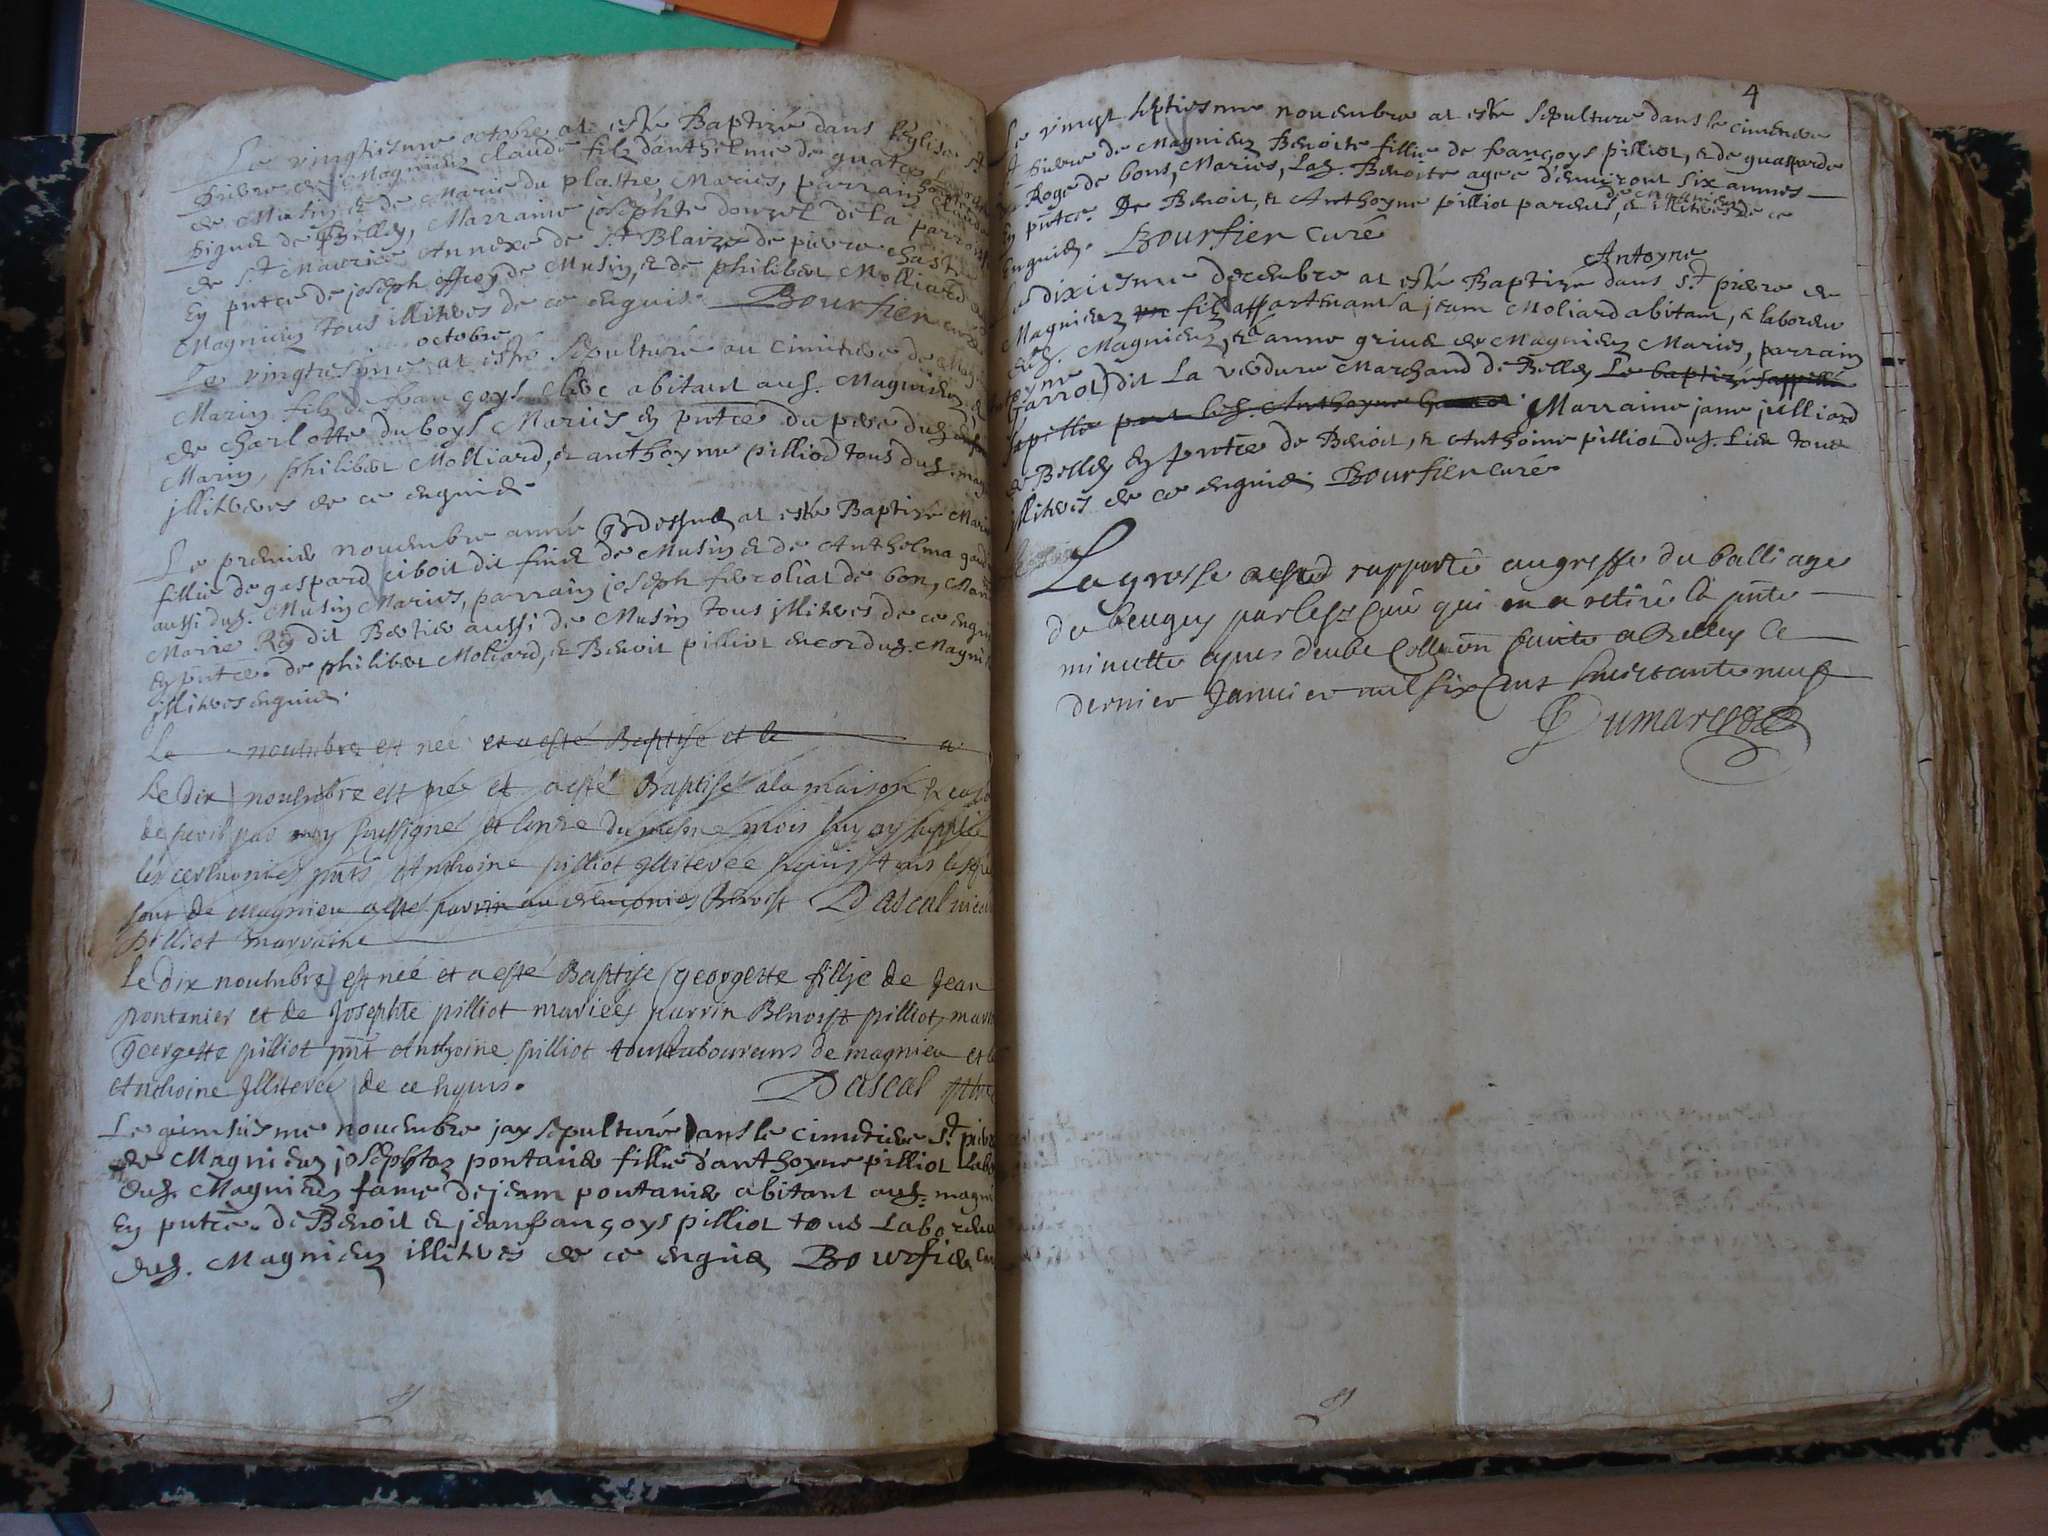 Le vingtiesme octobre at esté Baptizé dans l'églize St
pierre de Magnieu claude filz danthelme de
de Musin & de Marie du plastre, Mariés, parrain claude
signet de Belley, Marraine josephte douzel de la parroisse
de St Maurice Annexe de St Blaize de pierre chastel
En pntce de joseph offroy de Musin, & de philibert Molliard
Magnieu tous illiteres de ce enquis. Bourfier curé
octobre
Le vingtiesme at esté sepulturé au cimitere de
Marin filz de françoys clerc abitant aud. Magnieu, &
de charlotte duboys Mariés En pntce du pere dud.
Marin, philibert Molliard, & anthoyne pilliod tous dud.
jlliteres de ce enquis
Le premier novembre année cy dessus at esté Baptizé
fillie de gaspard ciboit dit finet de Musin & de Anthelma
aussi dud. Musin Mariés, parrain joseph de bon,
Marie Rey dit Bertier aussi de Musin tous jlliteres de ce
En pntce. de philibert Moliard, & Benoit pilliot encor dud.
jlliteres enquis.
Le novembre est née et a esté Baptisé et le a
Le Dix novembre est née et a esté Baptisé a la maison
de peril par moy soussigné et l'onze du mesme mois luy ay supplié
les ceremonies pnts Anthoine pilliot jlliteree
de Magnieu a esté parrin au ceremonies Benoist Dascal
pilliot marraine
Le Dix novembre est née et a esté Baptise Georgette fillje de Jean
pontanier et de Josephte pilliot mariees parrin Benoist pilliot,
Georgette pilliot pnt Anthoine pilliot tous laboureurs de magnieu
Anthoine Jlliteree de ce hquis. Dascal
Le quinsiesme novembre jay sepulturé dans le cimetiere St pierre
de Magnieu josephtaz pontanier fillie danthoyne pilliot
dud. Magnieu fame de jean pontanier abitant aud.
En pntce. de Benoit & jean françoys pilliot tous
dud. Magnieu illiteres de ce enquis Bourfier
4
Le vingt septiesme novembre at esté sepulture dans le cimetiere
St pierre de Magnieu Benoite fillie de françoys pilliot, & de guasparde
Roge de bons, Mariés, lad. Benoite agee d'environt six annes
En pntce. De Benoit, & Anthoyne pilliot parents, & illiteres de ce
enquis. Bourfier curé
Antoyne
Le dixiesme decembre at esté Baptizé dans St pierre de
Magnieu un filz appartenant a jean Moliard abitant, & laboreur
dud. Magnieu, & a anne grivet de Magnieu Mariés, parrain
Garrot dit La verdure Marchand de Belley Le baptizé sappelle
Marraine jane julliard
de Belley En pntce de Benoit, & Anthoine pilliot dud. Lieu tous
jlliteres de ce enquis Bourfier curé
La grosse a esté rapporté au greffe du balliage
de beugey par led. sr curé qui en a retiré la pnte
minutte apres deube Collaon faite a Belley ce
dernier Janvier mil six cent huictante neuf
Dumarest